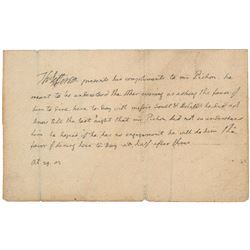 Th: Jefferson presents his compliments to mr Pichon. he
meant to be understood the other evening as asking the favor of
him to dine here to day with messrs
know till the last night that mr Pichon did not so understand
him. he hopes if he has no engagement he will do him the
favor of dining here to day at half after three.